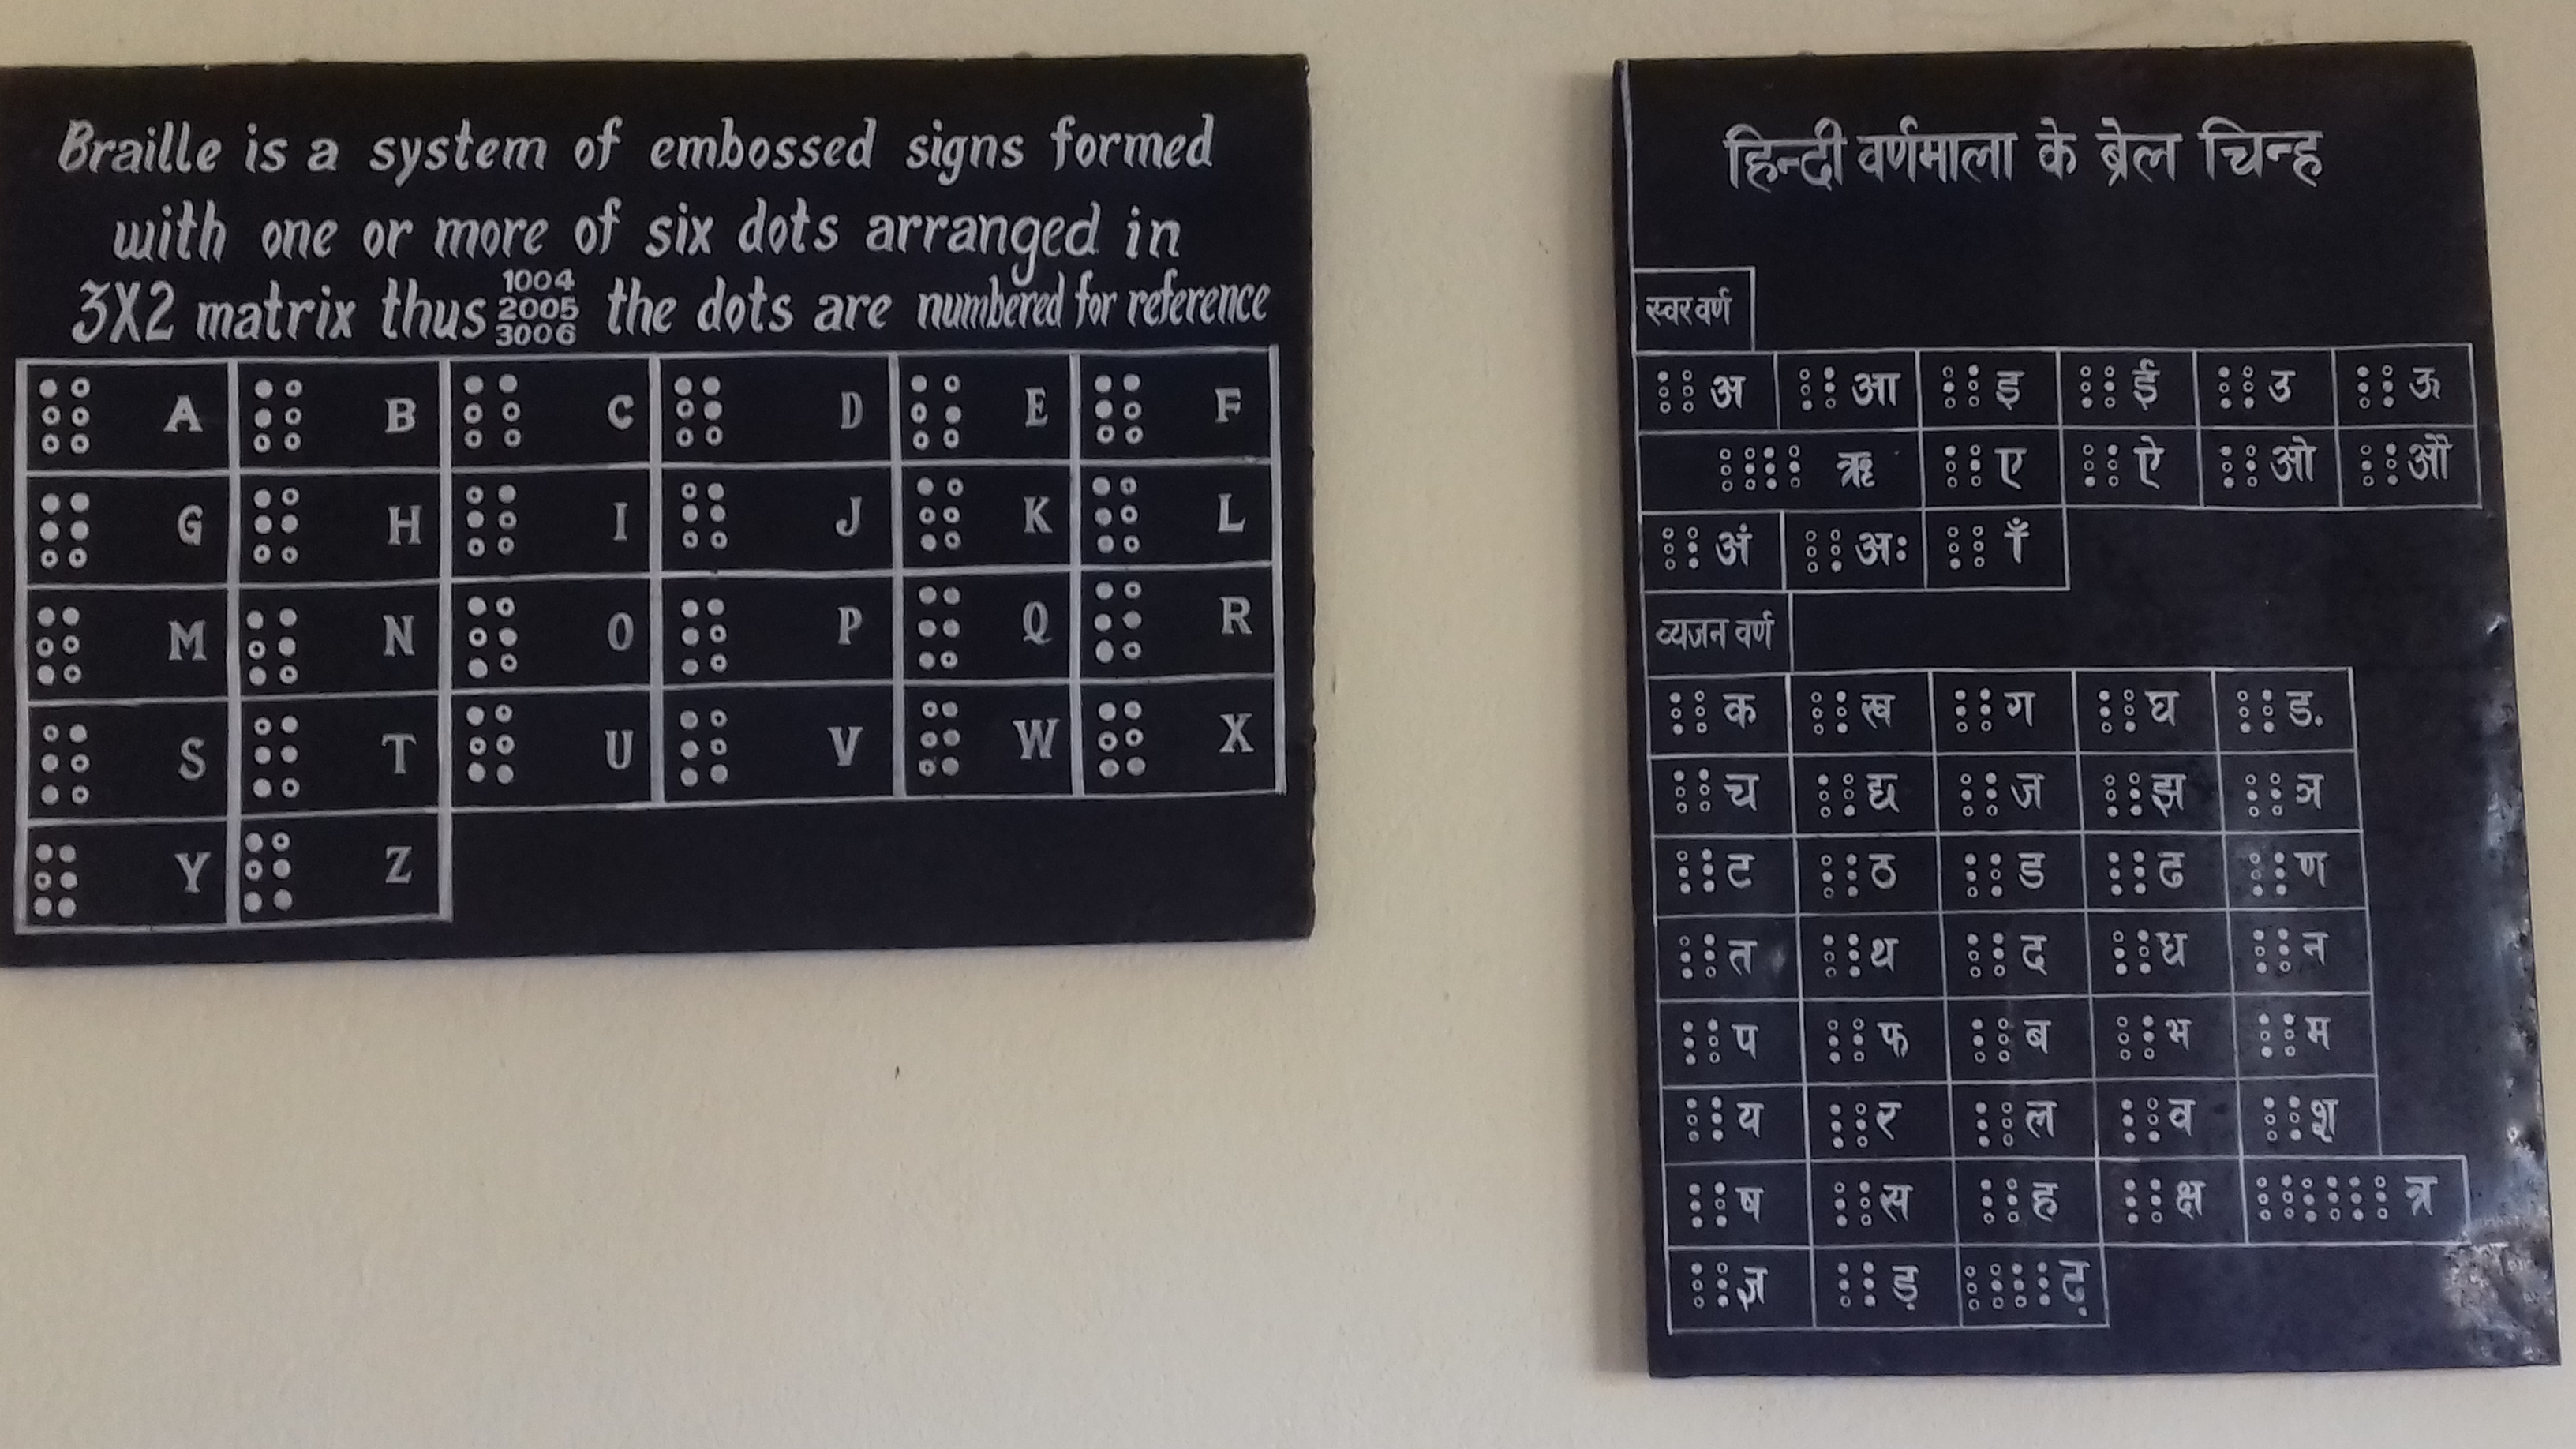 Braille is a system of embossed signs formed
with one or more of six dots arranged in
3X2 matrix thus 1004 2005 3006 the dots are numbered for reference
A B C D E F
G H I J K L
M N O P Q R
S T U V W X
Y Z
हिन्दी वर्णमाला के ब्रेल चिन्ह
स्वर वर्ण
अ आ इ ई उ ऊ
ऋ ए ऐ ओ औ
अं अः ँ
व्यजन वर्ण
क ख ग घ ड.
च छ ज झ ञ
ट ठ ड ढ ण
त थ द ध न
प फ ब भ म
य र ल व श
ष स ह क्ष त्र
ज्ञ ड़ ढ़